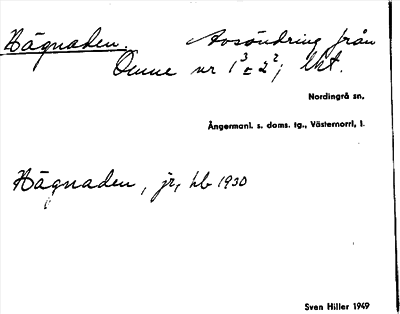 Hägnaden. Avsöndring från
Omne nr 1³ = 2²; lht.
Nordingrå sn,
Ångermanl. s. doms. tg., Västernorrl, l.
Hägnaden, jr, hb 1930
Sven Hiller 1949